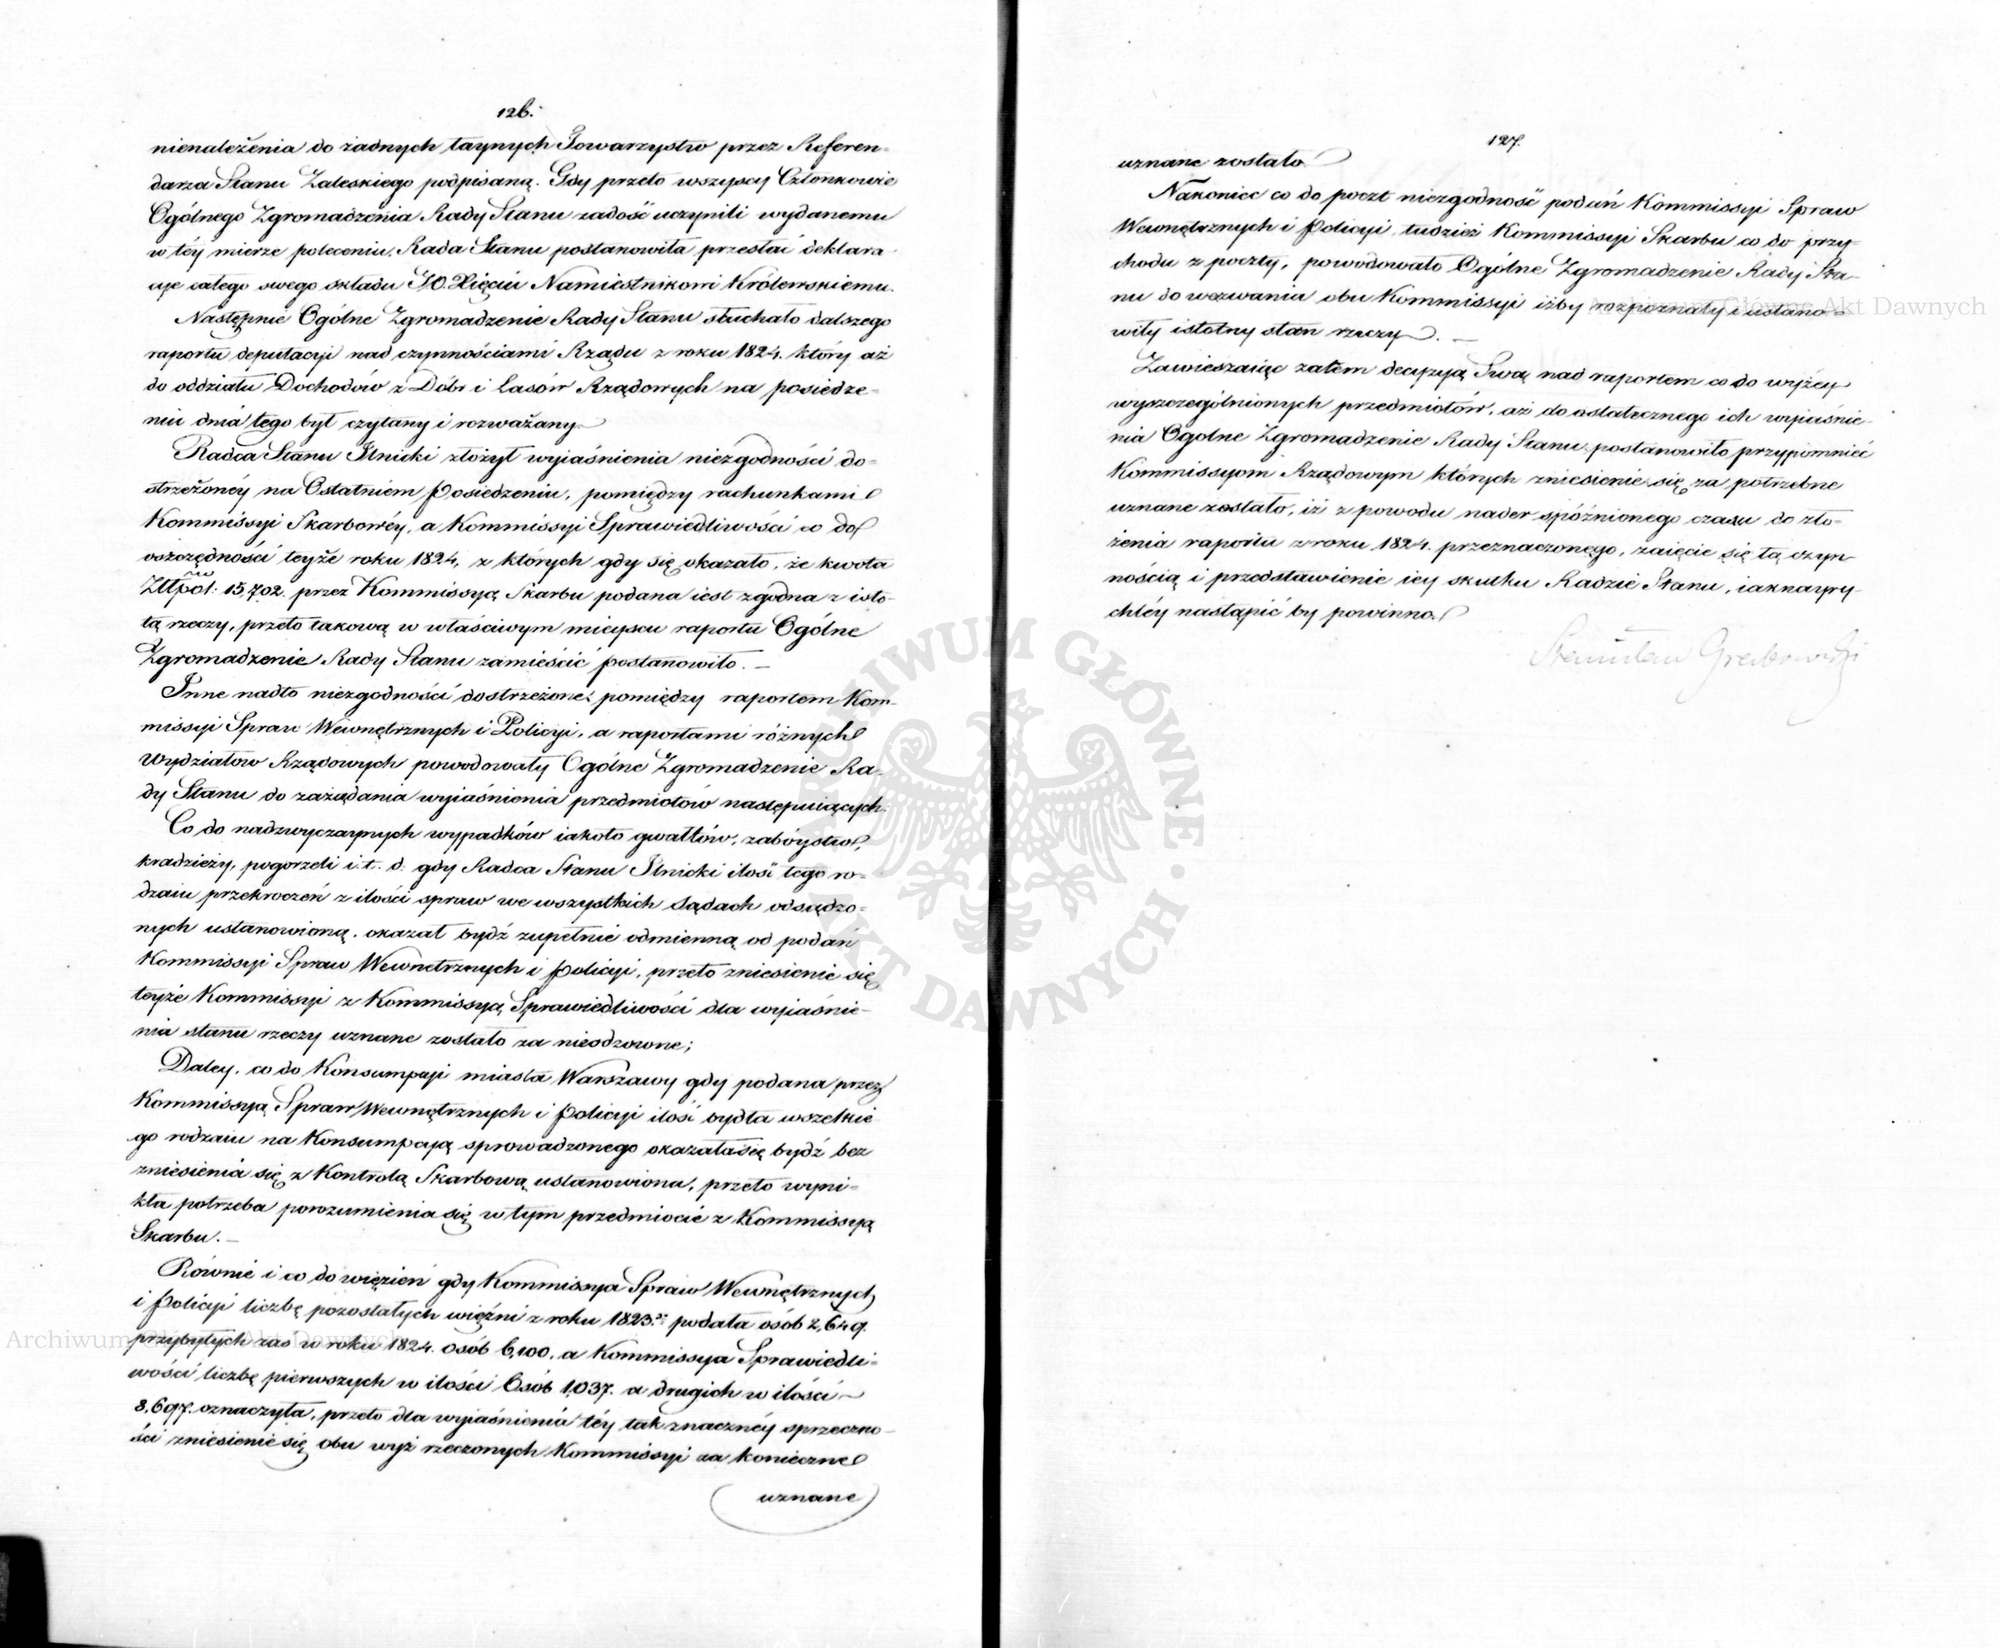 126.
nienależenia do żadnych taynych Towarzystw przez Referen-
darza Stanu Zaleskiego podpisaną. Gdy przeto wszyscy Członkowie
Ogólnego Zgromadzenia Rady Stanu zadość uczynili wydanemu
w téy mierze poleceniu, Rada Stanu postanowiła przesłać deklara-
cye całego swego składu JO. Xięciu Namiestnikowi Królewskiemu.
Następnie Ogólne Zgromadzenie Rady Stanu słuchało dalszego
raportu deputacyi nad czynnościami Rządu z roku 1824. który aż
do oddziału Dochodów z Dóbr i Lasów Rządowych na posiedze-
niu dnia tego był czytany i rozważany.
Radca Stanu Ilnicki złożył wyiaśnienia niezgodności do-
strzeżonéy na Ostatniem Posiedzeniu, pomiędzy rachunkami
Kommissyi Skarbowéy, a Kommissyi Sprawiedliwości co do
oszczędności teyże roku 1824, z których gdy się okazało, że kwota
Złtpol: 15,702. przez Kommissyą Skarbu podana iest zgodna z isto-
tą rzeczy, przeto takową w właściwym mieyscu raportu Ogólne
Zgromadzenie Rady Stanu zamieścić postanowiło. —
Inne nadto niezgodności dostrzeżone pomiędzy raportem Kom-
missyi Spraw Wewnętrznych i Policyi, a raportami różnych
Wydziałow Rządowych powodowały Ogólne Zgromadzenie Ra-
dy Stanu do zażądania wyiaśnienia przedmiotów następuiących:
Co do nadzwyczaynych wypadków iakoto gwałtów, zabóystw,
kradzieży, pogorzeli i.t.d. gdy Radca Stanu Ilnicki ilość tego ro-
dzaiu przekroczeń z ilości spraw we wszystkich Sądach odsądzo-
nych ustanowioną, okazał bydź zupełnie odmienną od podań
Kommissyi Spraw Wewnetrznych i Policyi, przeto zniesienie się
teyże Kommissyi z Kommissyą Sprawiedliwości dla wyiaśnie-
nia stanu rzeczy uznane zostało za nieodzowne;
Daley, co do Konsumpcyi miasta Warszawy gdy podana przez
Kommissyą Spraw Wewnętrznych i Policyi ilość bydła wszelkie
go rodzaiu na Konsumpcyą sprowadzonego okazała się bydź bez
zniesienia się z Kontrolą Skarbową ustanowiona, przeto wyni-
kła potrzeba porozumienia się w tym przedmiocie z Kommissyą
Skarbu. —
Równie i co do więzień gdy Kommissya Spraw Wewnętrznych
i Policyi liczbę pozostałych więźni z roku 1823. podała osób 2,649.
przybyłych zaś w roku 1824. osób 6,100, a Kommissya Sprawiedli-
wości liczbę pierwszych w ilości Osób 1,037. a drugich w ilości
8,697. oznaczyła, przeto dla wyiaśnienia téy tak znacznéy sprzeczno-
ści zniesienie się obu wyż rzeczonych Kommissyi za konieczne
uznane
127.
uznane zostało.
Nakoniec co do poczt niezgodność podań Kommissyi Spraw
Wewnętrznych i Policyi, tudzież Kommissyi Skarbu co do przy-
chodu z poczty, powodowało Ogólne Zgromadzenie Rady Sta-
nu do wezwania obu Kommissyi iżby rozpoznały i ustano-
wiły istotny stan rzeczy. —
Zawieszaiąc zatem decyzyą Swą nad raportem co do wyżey
wyszczególnionych przedmiotów, aż do ostatecznego ich wyiaśnie-
nia Ogolne Zgromadzenie Rady Stanu postanowiło przypomnieć
Kommissyom Rządowym których zniesienie się za potrzebne
uznane zostało, iż z powodu nader spóźnionego czasu do zło-
żenia raportu z roku 1824. przeznaczonego, zaięcie się tą czyn-
nością i przedstawienie iey skutku Radzie Stanu, iaknayry-
chléy nastąpić by powinno.
Stanisław Grabowski
ARCHIWUM GŁÓWNE AKT DAWNYCH
Archiwum Główne Akt Dawnych
Archiwum Główne Akt Dawnych